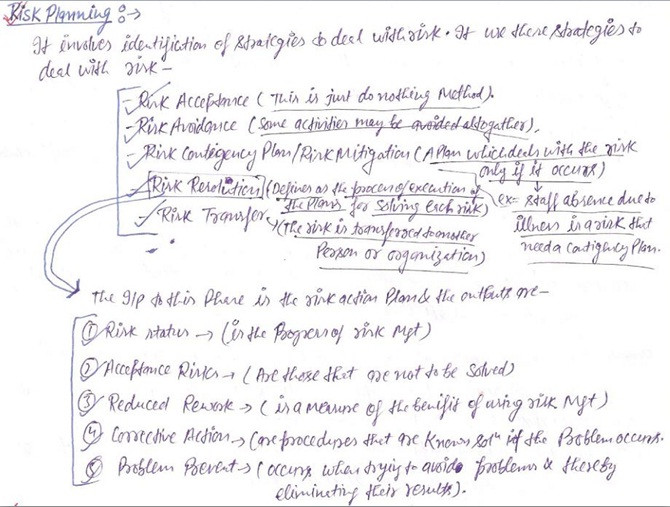 Risk Planning :→
It involves identification of strategies to deal with risk. It use these strategies to
deal with risk -
- Risk Acceptance (This is just do nothing Method).
- Risk Avoidance (Some activities may be avoided altogather).
- Risk Contigency Plan/Risk Mitigation (A Plan which deals with the risk
only if it occurs)
- Risk Resolution (Defines as the process of execution of
the Plans for solving each risk)
ex= staff absence due to
illness is a risk that
need a contigency Plan.
- Risk Transfer → (The risk is transferred to another
Person or organization)
The I/P to this Phase is the risk action Plan & the outputs are -
① Risk status → (is the Progress of risk Mgt)
② Acceptance Risks → (Are those that are not to be Solved)
③ Reduced Rework → (is a measure of the benifit of using risk Mgt)
④ Corrective Action → (are procedures that are known solⁿ if the Problem occurs.
⑤ Problem Prevent → (occurs when trying to avoid problems & thereby
eliminating their results).